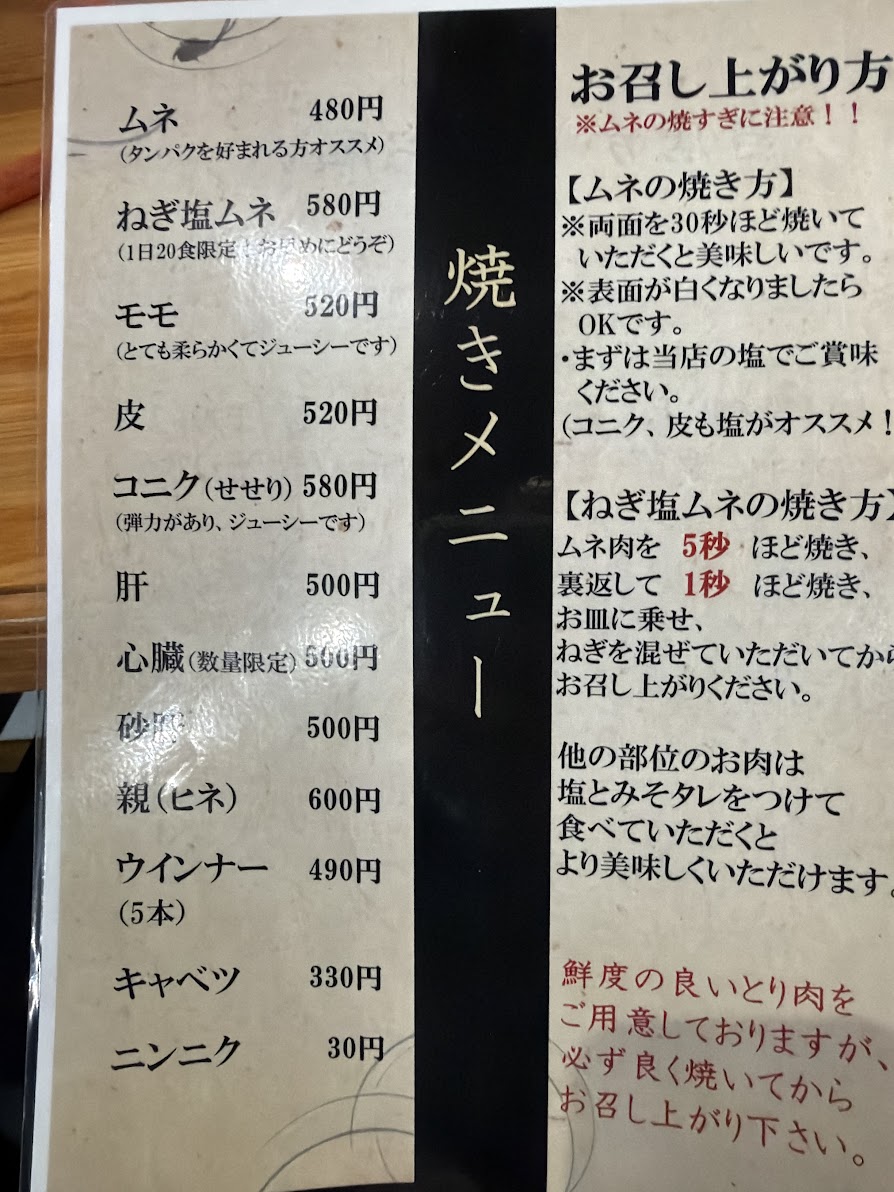 ムネ 480円
(タンパクを好まれる方オススメ)
ねぎ塩ムネ 580円
(1日20食限定!お早めにどうぞ)
モモ 520円
(とても柔らかくてジューシーです)
皮 520円
コニク(せせり) 580円
(弾力があり、ジューシーです)
肝 500円
心臓(数量限定) 500円
砂肝 500円
親(ヒネ) 600円
ウインナー 490円
(5本)
キャベツ 330円
ニンニク 30円
焼きメニュー
お召し上がり方
※ムネの焼すぎに注意!!
【ムネの焼き方】
※両面を30秒ほど焼いて
いただくと美味しいです。
※表面が白くなりましたら
OKです。
・まずは当店の塩でご賞味
ください。
(コニク、皮も塩がオススメ!
【ねぎ塩ムネの焼き方】
ムネ肉を 5秒 ほど焼き、
裏返して 1秒 ほど焼き、
お皿に乗せ、
ねぎを混ぜていただいてから
お召し上がりください。
他の部位のお肉は
塩とみそタレをつけて
食べていただくと
より美味しくいただけます。
鮮度の良いとり肉を
ご用意しておりますが、
必ず良く焼いてから
お召し上がり下さい。